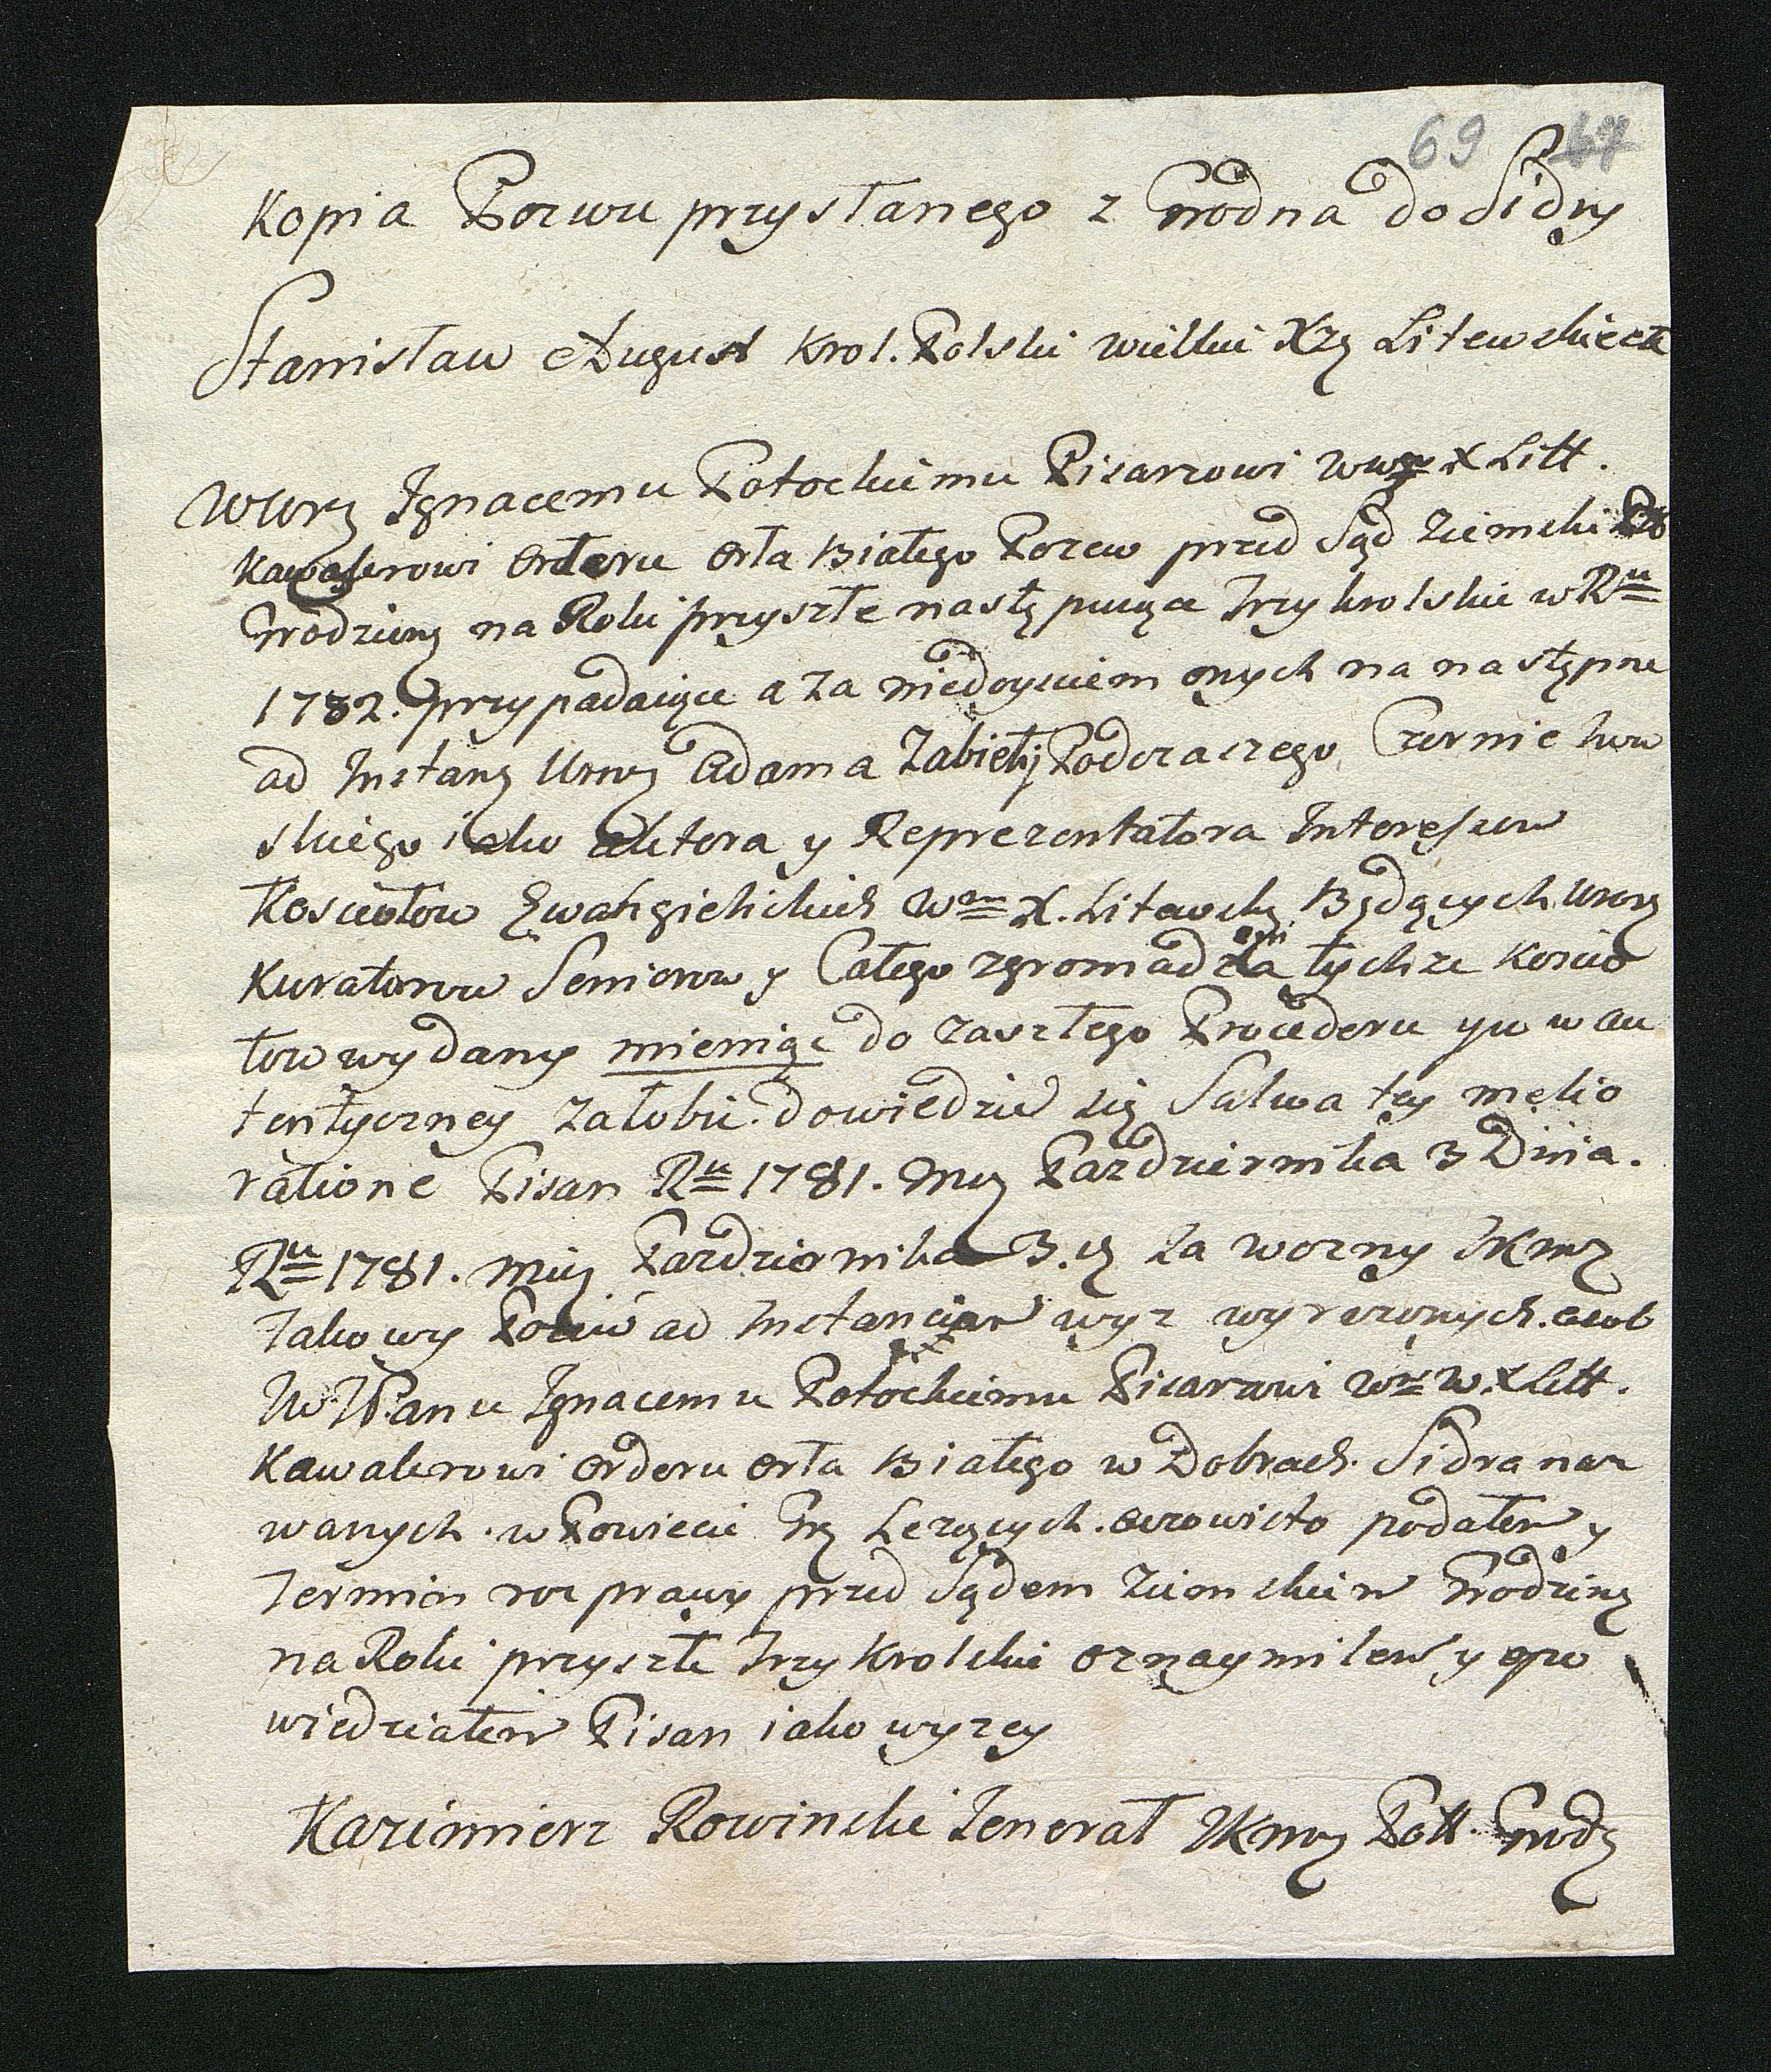 69 67
Kopia Pozwu przysłanego z Grodna do Sidry
Stanisław August Krol. Polski wielki Xzę Litewski etc
WUrz Ignacemu Potockiemu Pisarzowi Ww X Litt.
Kawalerowi Orderu Orła Białego Pozew przed Sąd Ziemski Ptt
Grodzieng na Roki przyszłe następuiące Trzykrolskie w Ru
1782. przypadaiące a za niedoysciem onych na następne
ad Instang Urnog Adama Zabiełły Podczaszego Czerniehow
skiego iako aktora y Reprezentatora Interessow
Kosciołow Ewangielickich W X. Litewskg Będących Urorg
Kuratorow Seniorow y Całego zgromadzenia tychze Koscio
łow wydany mieniąc do zaszłego Procederu y w au
tentyczney załobie. dowiedzie się Salwa tey melio
ratione Pisan Ru 1781. Msca Pazdziernika 3 Dnia.
Ru 1781. Miesg Pazdziernika 3. ja wozny JKmci
Takowy Pozew ad Instanciam wyz wyrazonych. osob
W JPanu Ignacemu Potockiemu Pisarzowi Wu W. X Litt.
Kawalerowi Orderu Orła Białego w Dobrach. Sidra naz
wanych. w Powiecie Grg Lezących. oczowisto podałem y
Termin rozprawy przed Sądem Ziemskim Grodzieng
na Roki przyszłe Trzykrolskie oznaymiłem y opo
wiedziałem Pisan iako wyzey
Kazimierz Rowinski Jenerał JKmci Ptt. Grodz